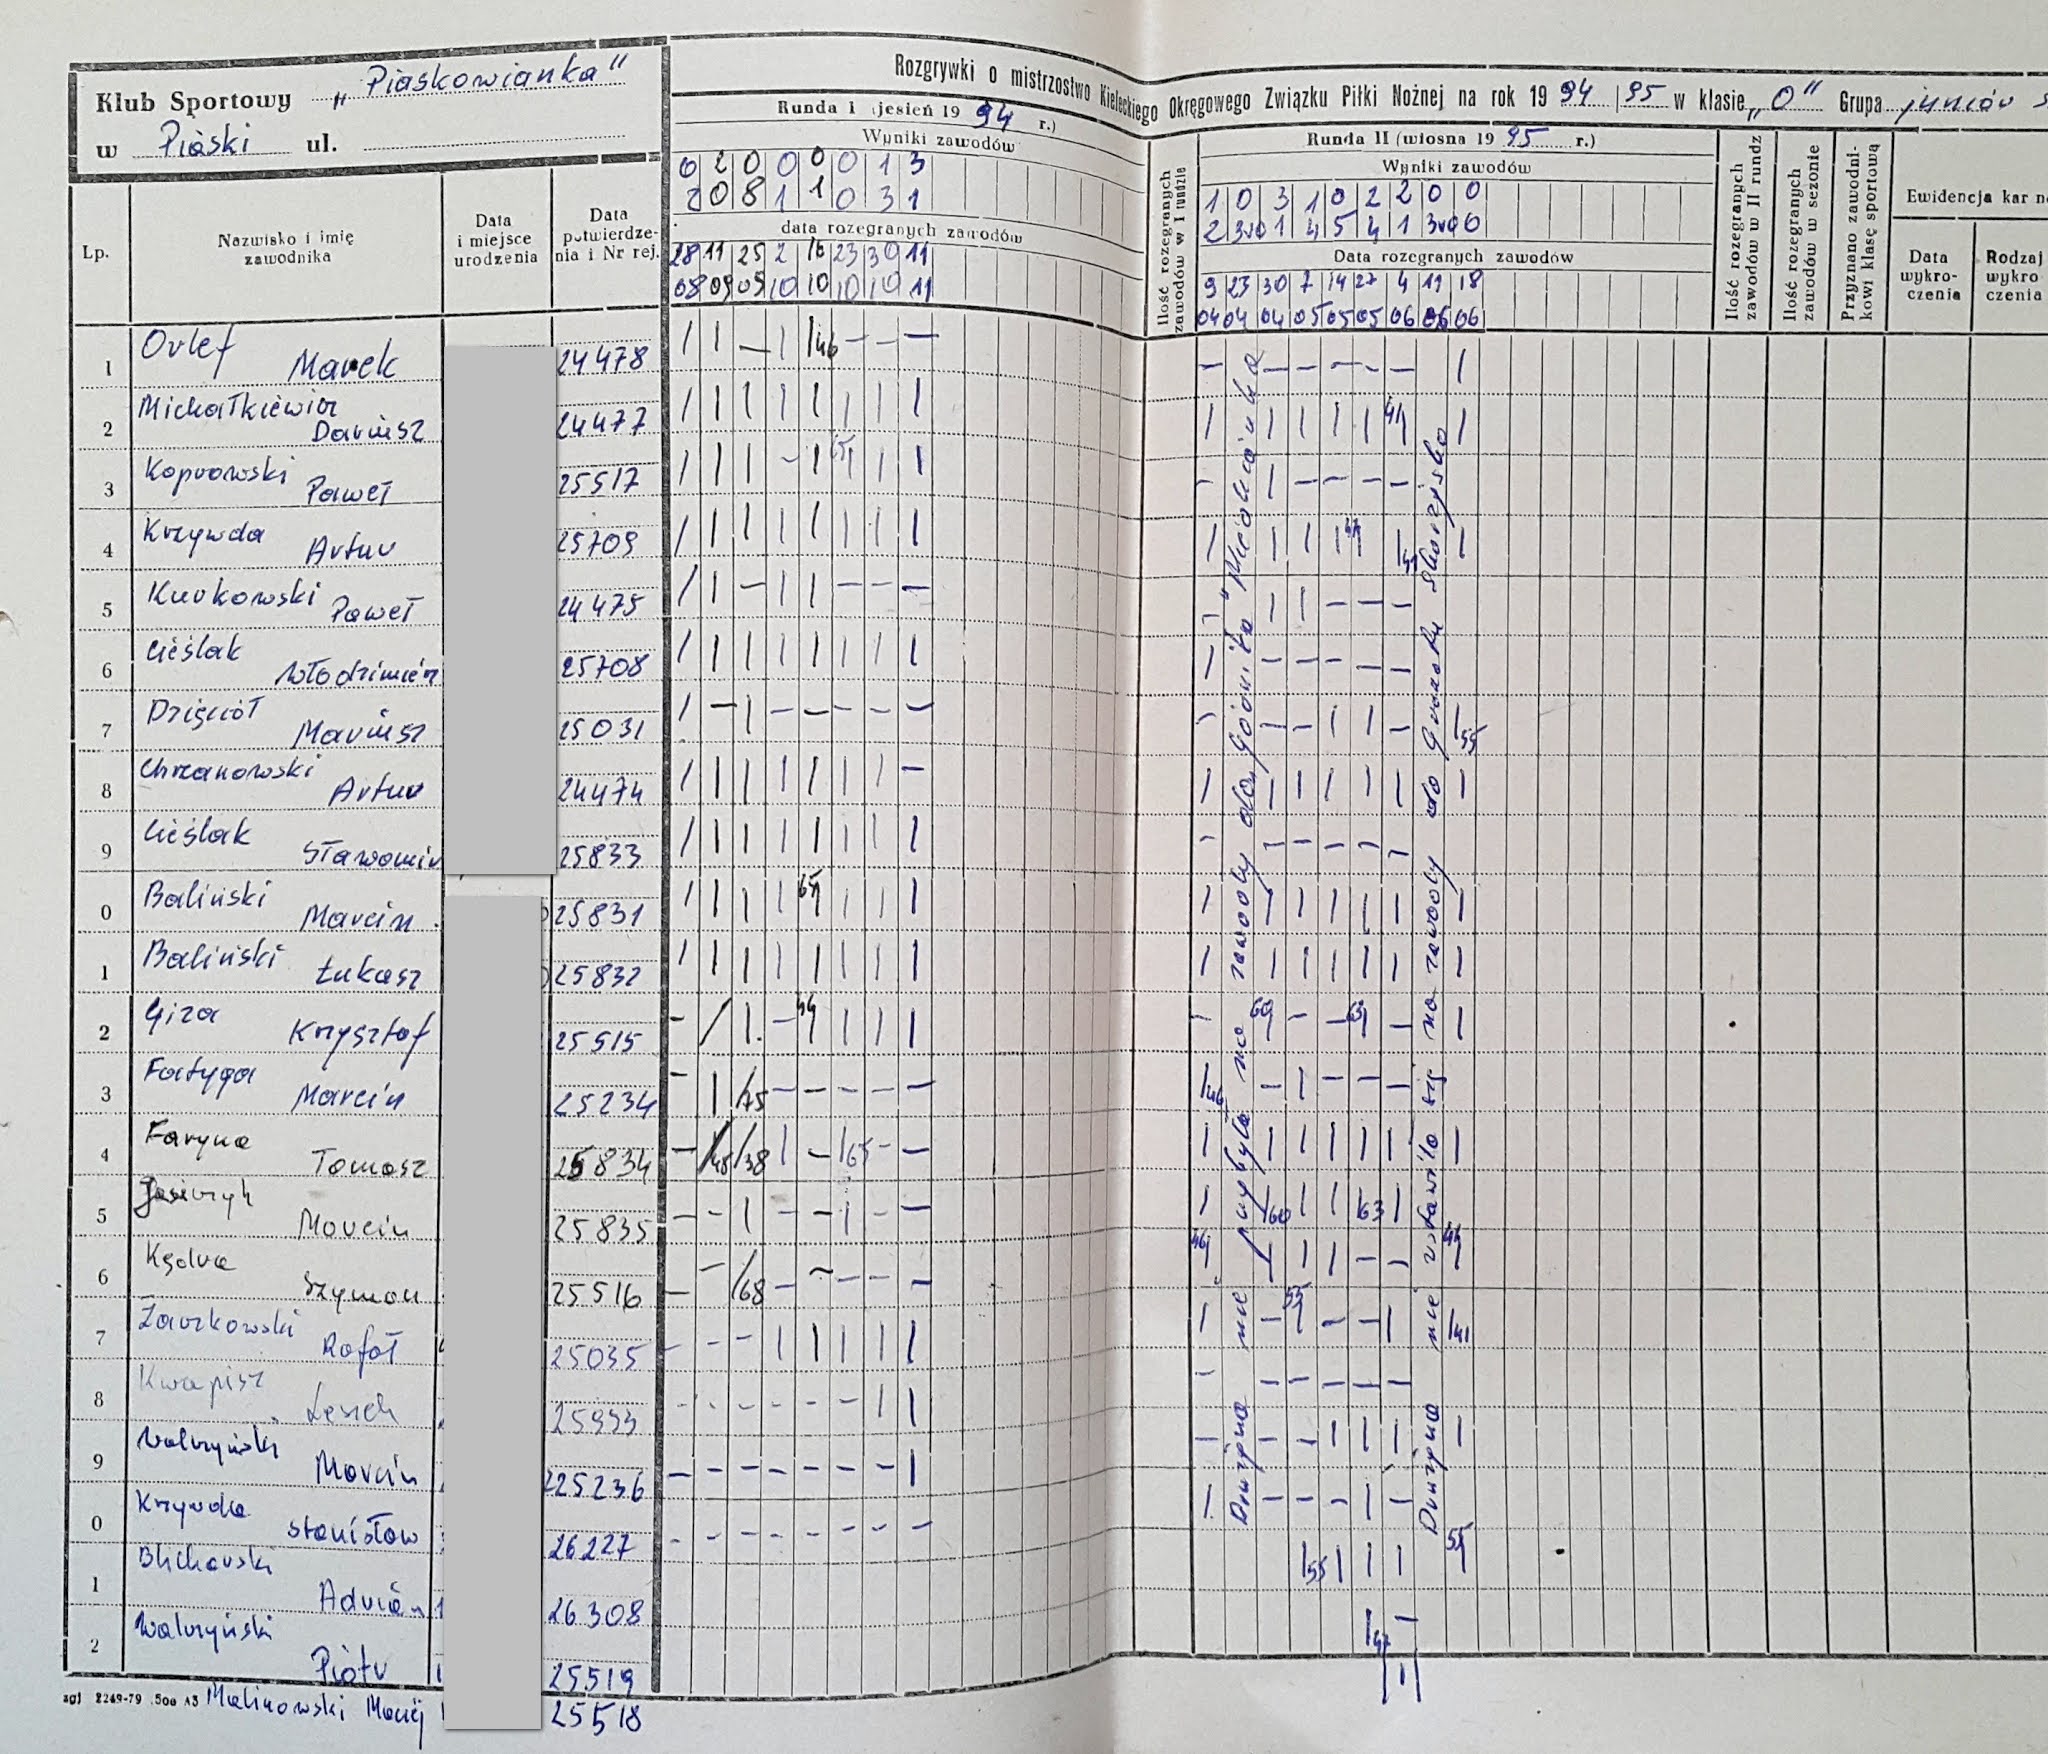 Klub Sportowy „Piaskowianka"
w Piaski ul.
Rozgrywki o mistrzostwo Kieleckiego Okręgowego Związku Piłki Nożnej na rok 1994/95 w klasie „O" Grupa
Runda I (jesień 1994 r.)
Wyniki zawodów
0 2 0 0 0 0 1 3
2 0 8 1 1 0 3 1
data rozegranych zawodów
28 11 25 2 16 23 30 11
08 09 09 10 10 10 10 11
Ilość rozegranych zawodów w I rundzie
Runda II (wiosna 1995 r.)
Wyniki zawodów
1 0 3 1 0 2 2 0 0
2 3vo 1 4 5 4 1 3vo 0
Data rozegranych zawodów
9 23 30 7 14 27 4 11 18
04 04 04 05 05 05 06 06 06
Ilość rozegranych zawodów w II rundz
Ilość rozegranych zawodów w sezonie
Przyznano zawodni-
kowi klasę sportową
Ewidencja kar
Data
wykro-
czenia
Rodzaj
wykro
czenia
Lp.
Nazwisko i imię
zawodnika
Data
i miejsce
urodzenia
Data
potwierdze-
nia i Nr rej.
1 Orlef Marek 24478
2 Michałkiewicz Dariusz 24477
3 Koprowski Paweł 25517
4 Krzywda Artur 25709
5 Kurkowski Paweł 24475
6 Cieślak Włodzimierz 25708
7 Dzięcioł Mariusz 25031
8 Chrzanowski Artur 24474
9 Cieślak Sławomir 25833
0 Baliński Marcin 25831
1 Baliński Łukasz 25832
2 Giza Krzysztof 25515
3 Fatyga Marcin 25234
4 Faryna Tomasz 25834
5 Marcin 25835
6 Kądra Szymon 25516
7 Żarzkowski Rafał 25035
8 Kwapisz Leszek 25933
9 Walczyński Marcin 25236
0 Krzywda Stanisław 26227
1 Blicharski Adrian 26308
2 Walczyński Piotr 25519
Malinowski Maciej 25518
Drużyna nie przybyła na zawody
Drużyna nie wstawiła się na zawody do Gwarka
zgj 2249-79 .500 A3